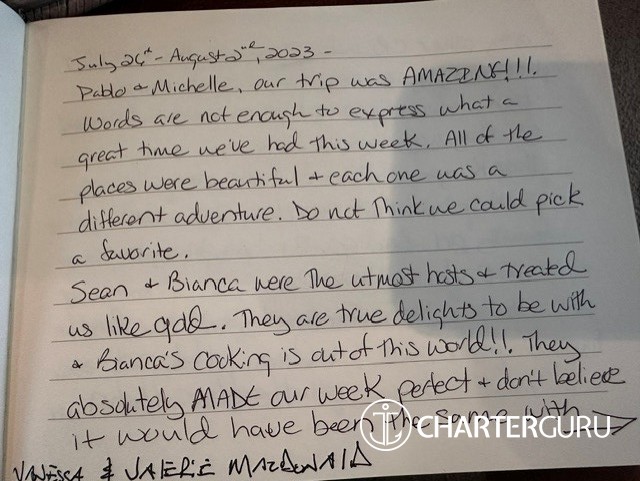 July 26th - August 2nd, 2023 -
Pablo & Michelle, our trip was AMAZING!!!.
Words are not enough to express what a
great time we've had this week. All of the
places were beautiful & each one was a
different adventure. Do not think we could pick
a favorite.
Sean & Bianca were the utmost hosts & treated
us like gold. They are true delights to be with
& Bianca's cooking is out of this world!!. They
absolutely MADE our week perfect & don't believe
it would have been the same with
CHARTERGURU
VANESSA & VALERIE MACDONALD